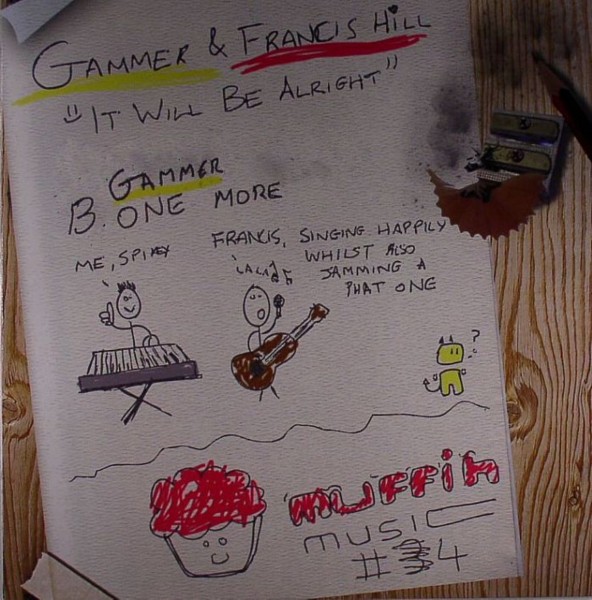 GAMMER & FRANCIS HILL
"IT WILL BE ALRIGHT"
GAMMER
B. ONE MORE
ME, SPIKEY
FRANCIS, SINGING HAPPILY
WHILST ALSO
JAMMING A
PHAT ONE
LA LA
?
muffin
MUSIC
#34